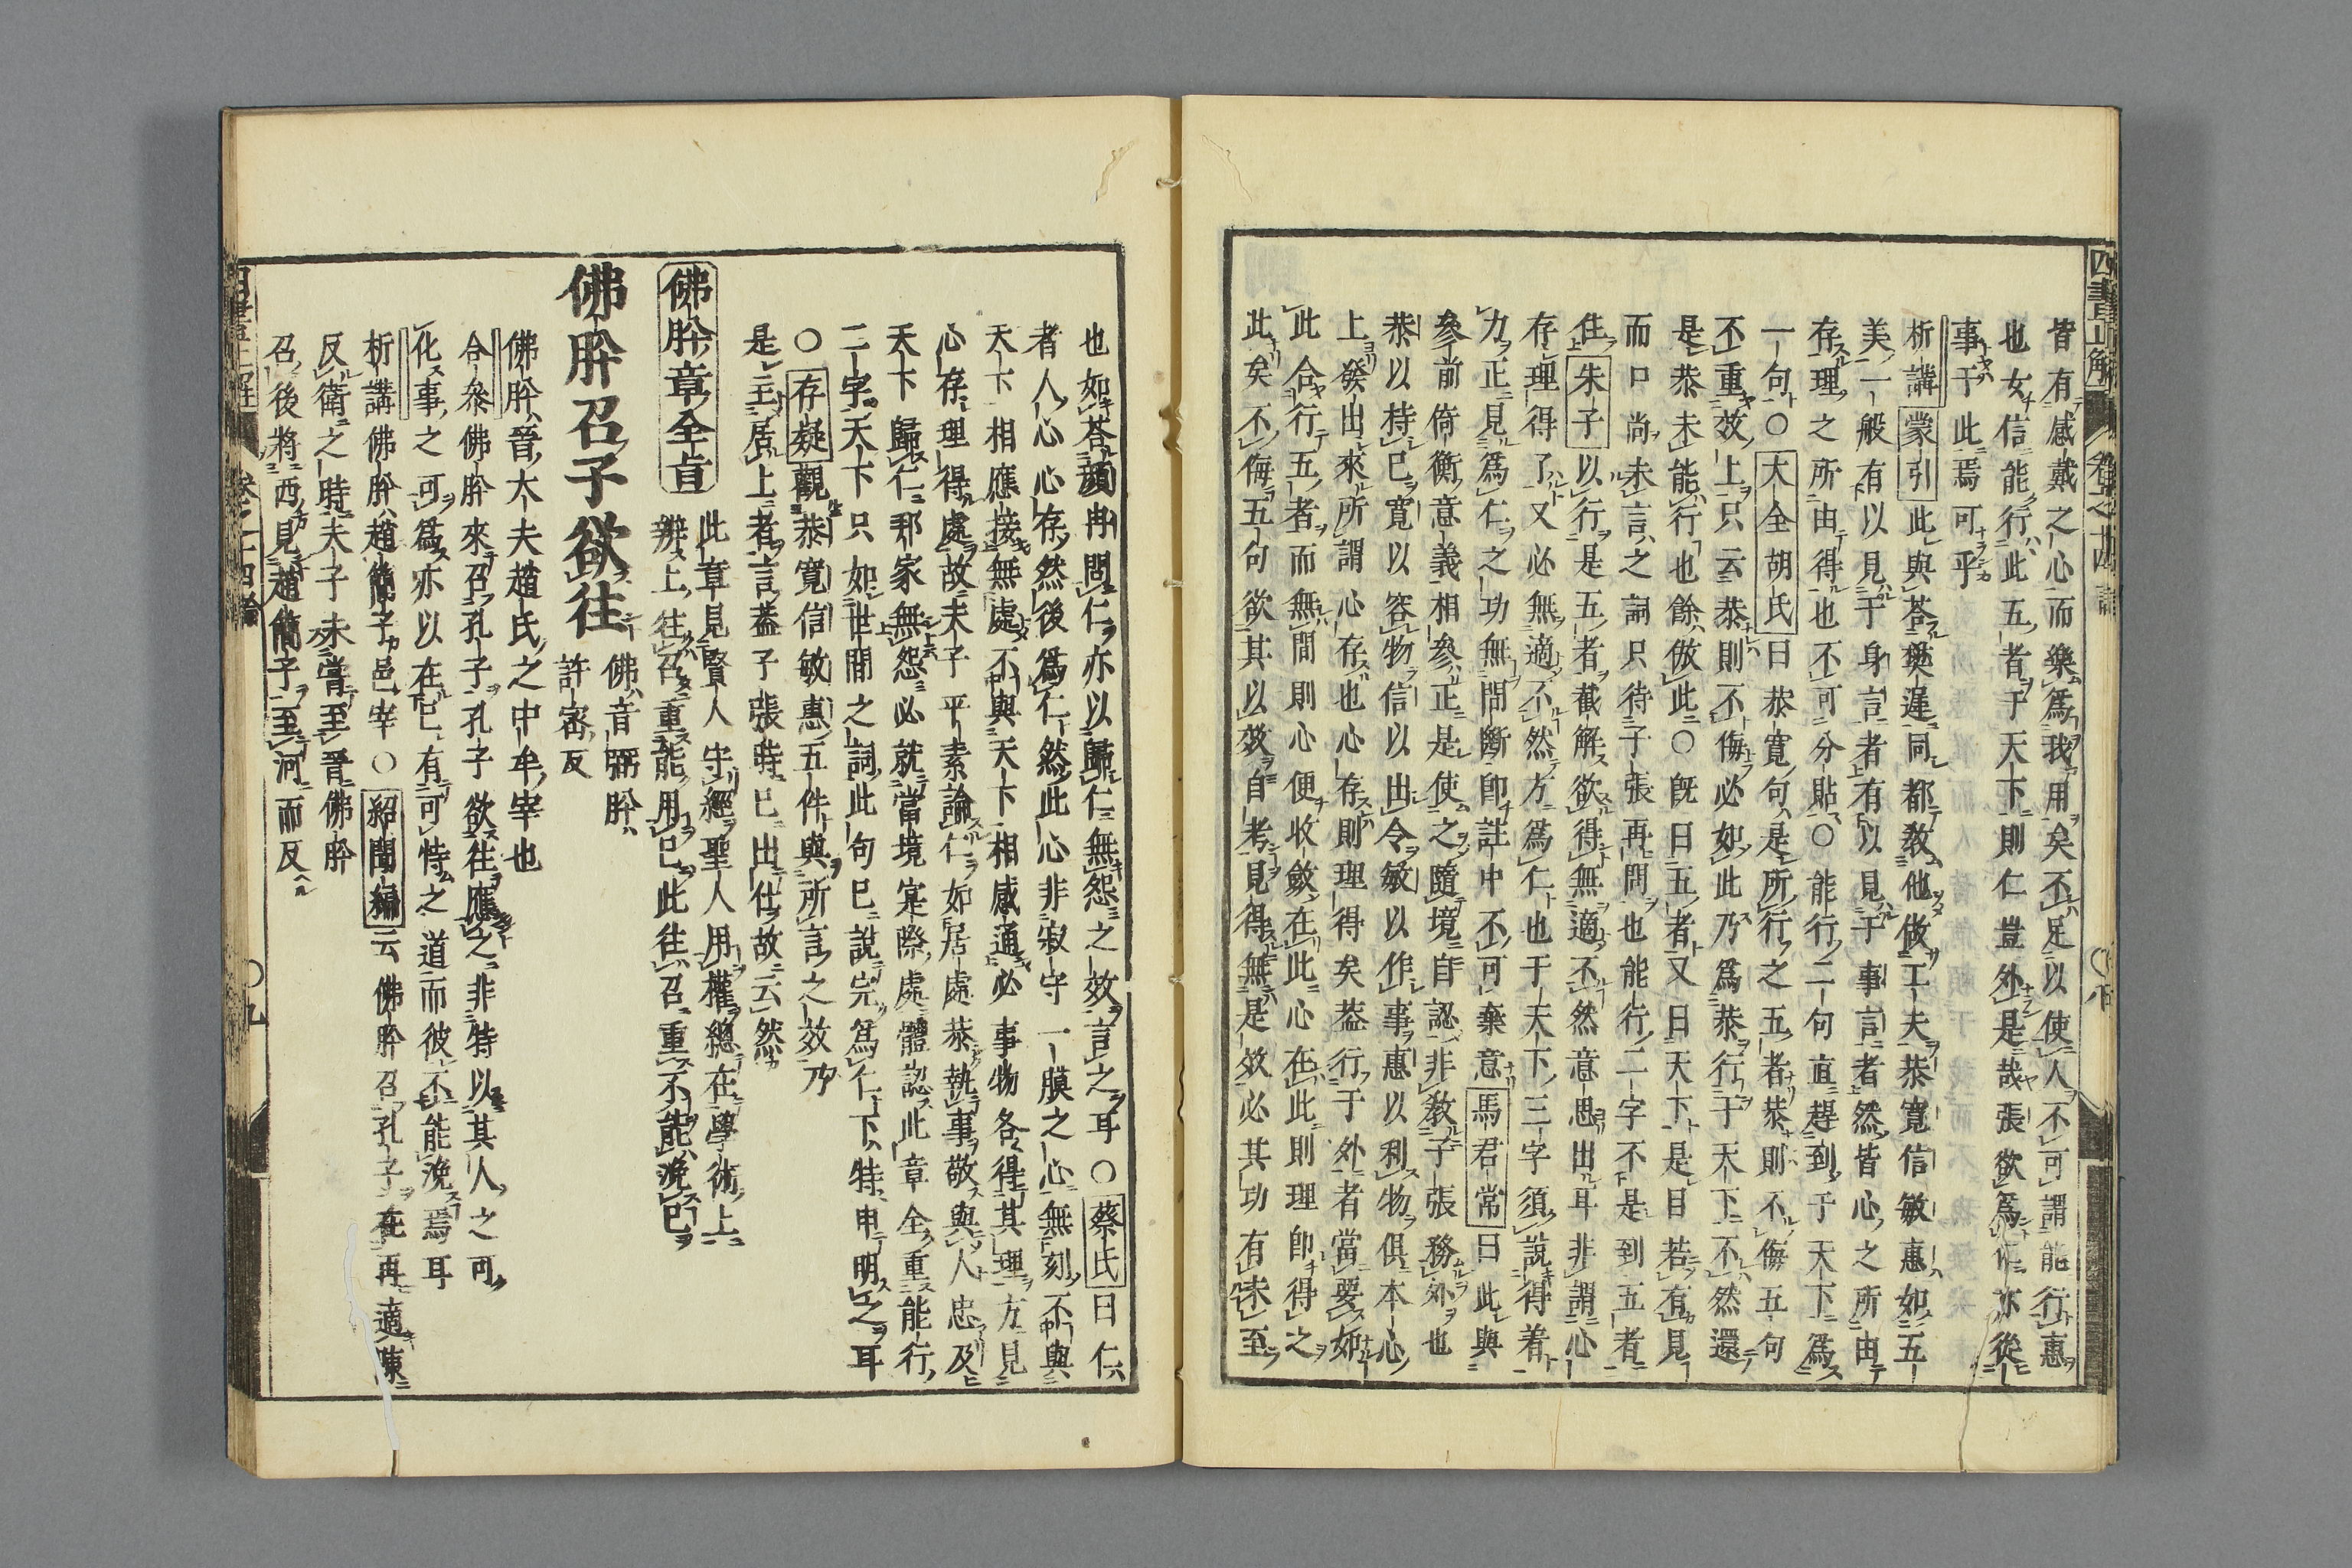 皆有感戴之心而樂爲我用矣不足以使人不可謂能行惠
也女信能行此五者于天下則仁豈外是哉張欲爲仁亦從
事于此焉可乎
析講蒙引此與荅樊遲同都教他做工夫恭寬信敏惠如五
美一般有以見于身言者有以見于事言者然皆心之所由
存理之所由得也不可分貼○能行二句直趕到于天下爲
一句○大全胡氏曰恭寬句是所行之五者恭則不侮五句
不重效上只云恭則不侮必如此乃爲恭行于天下不然還
是恭未能行也餘倣此○既曰五者又曰天下是目若有見
而口尚未言之詞只待子張再問也能行二字不是到五者
住朱子以行是五者截解欲得無適不然意思出耳非謂心
存理得了又必無適不然方爲仁也于天下三字須說得着
力正見爲仁之功無間斷卽註中不可棄意馬君常曰此與
參前倚衡意義相參正是使之隨境自認非教子張務外也
恭以持己寬以容物信以出令敏以作事惠以利物俱本心
上發出來所謂心存也心存則理得矣葢行于外者當要如
此合行五者而無間則心便收斂在此心在此則理卽得之
此矣不侮五句欲其以效自考見得無是效必其功有未至
也如荅顏冉問仁亦以歸仁無怨之效言之耳○蔡氏曰仁
者人心心存然後爲仁然此心非寂守一膜之心無刻不與
天下相應接無處不與天下相感通必事物各得其理方見
心存理得處故夫子平素論仁如居處恭執事敬與人忠及
天下歸仁邦家無怨必就當境寔際處體認此章全重能行
二字天下只如世間之詞此句已說完爲仁下特申明之耳
○存疑觀恭寬信敏惠五件與所言之效乃
是主居上者言葢子張時已出仕故云然
佛肸章全旨
此章見賢人守經聖人用權總在學術上
辨上往召重能用已此往召重不能浼已
佛肸召子欲往
佛音弼肸
許密反
佛肸晉大夫趙氏之中牟宰也
合叅佛肸來召孔子孔子欲往應之非特以其人之可
化事之可爲亦以在已有可恃之道而彼不能浼焉耳
析講佛肸趙簡子邑宰○紹聞編云佛肸召孔子在再適陳
反衛之時夫子未嘗至晉佛肸
召後將西見趙簡子至河而反